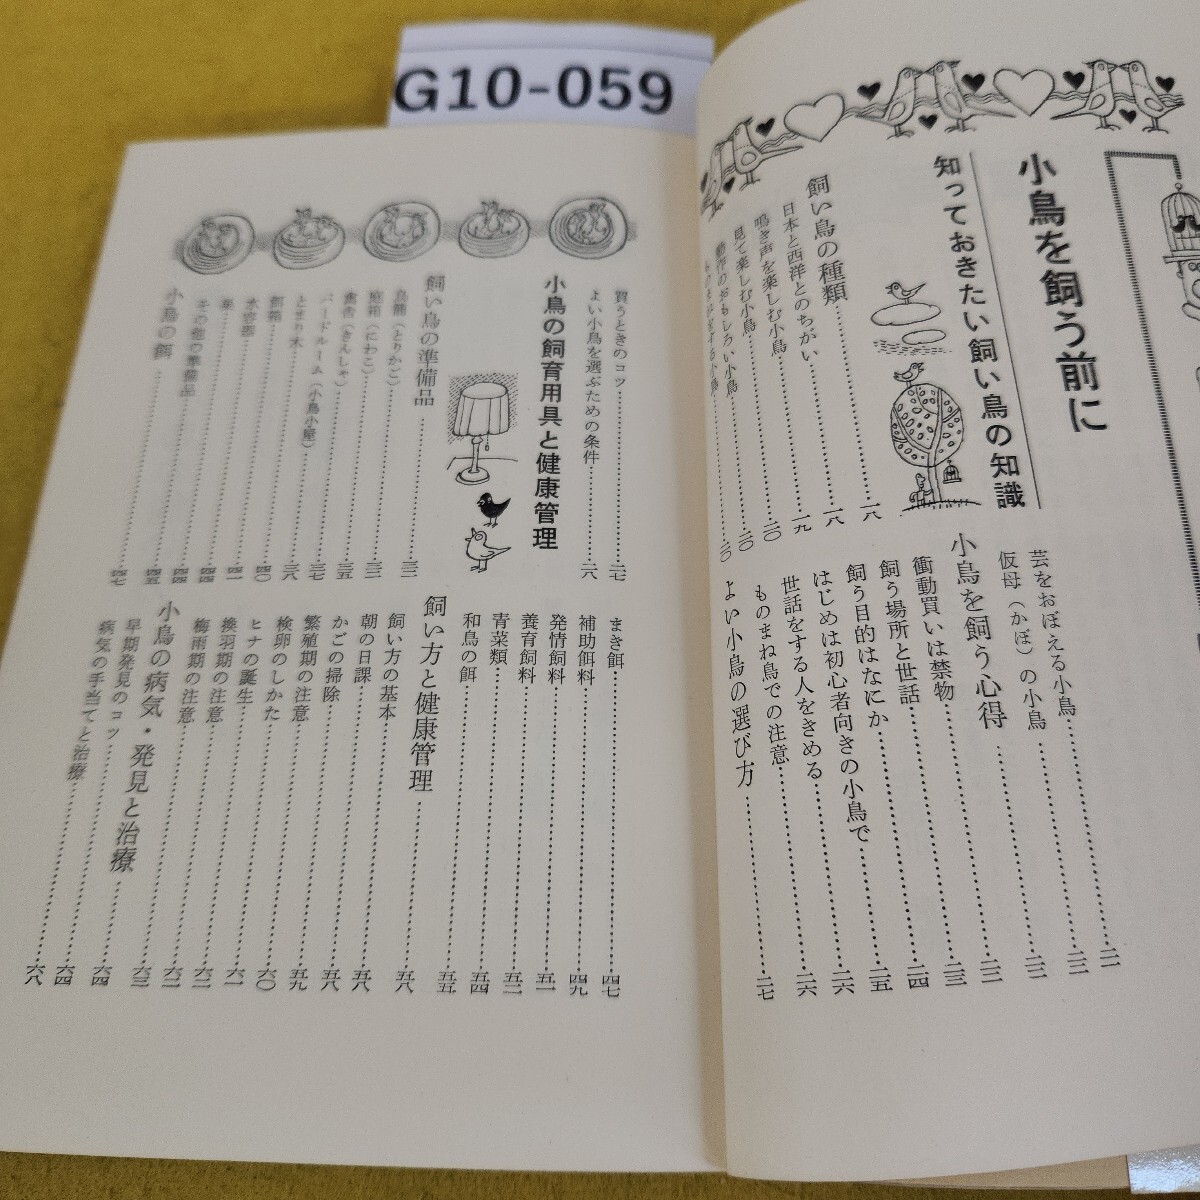 G10-059
小鳥を飼う前に
知っておきたい飼い鳥の知識
飼い鳥の種類……一八
日本と西洋とのちがい……一八
鳴き声を楽しむ小鳥……一九
見て楽しむ小鳥……二〇
動作のおもしろい小鳥……二〇
芸をおぼえる小鳥……二一
仮母（かぼ）の小鳥……二二
小鳥を飼う心得……二二
衝動買いは禁物……二三
飼う場所と世話……二四
飼う目的はなにか……二五
はじめは初心者向きの小鳥で……二六
世話をする人をきめる……二六
ものまね鳥での注意
よい小鳥の選び方……二七
買うときのコツ……二七
よい小鳥を選ぶための条件……二八
小鳥の飼育用具と健康管理
飼い鳥の準備品……三二
鳥籠（とりかご）……三二
庭箱（にわこ）……三五
禽舎（きんしゃ）……三七
バードルーム（小鳥小屋）……三八
とまり木……四〇
餌箱……四一
水容器……四四
巣……四四
その他の準備品……四五
小鳥の餌……四七
まき餌……四七
補助餌料……四九
発情飼料……五一
養育飼料……五二
青菜類……五四
和鳥の餌……五五
飼い方と健康管理……五八
飼い方の基本……五八
朝の日課……五八
かごの掃除……五九
繁殖期の注意……六〇
検卵のしかた……六一
ヒナの誕生……六二
換羽期の注意……六二
梅雨期の注意……六三
小鳥の病気・発見と治療……六四
早期発見のコツ……六四
病気の手当てと治療……六八